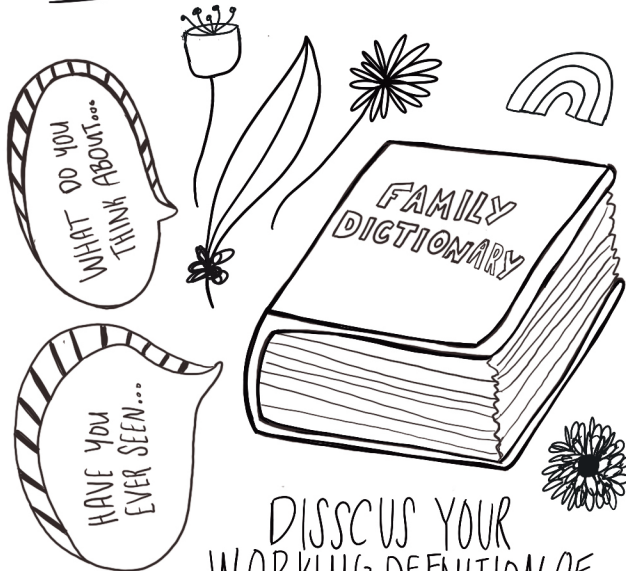 WHAT DO YOU
THINK ABOUT...
FAMILY
DICTIONARY
HAVE YOU
EVER SEEN...
DISSCUS YOUR
WORKING DEFINITION OF